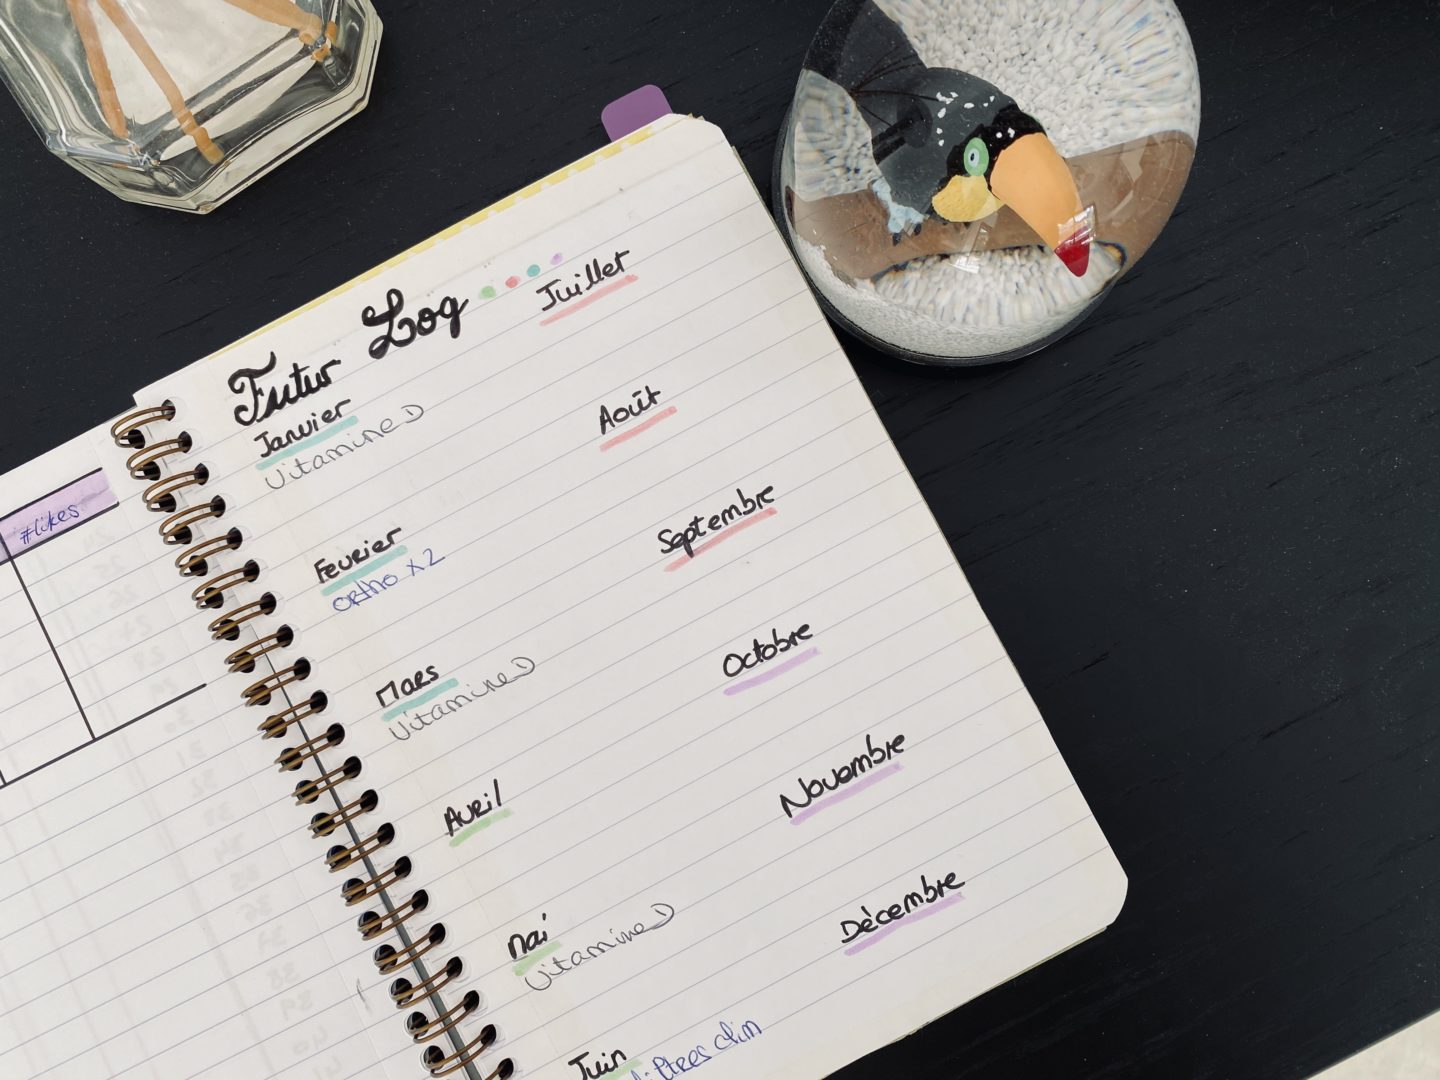 Futur Log
Janvier
Vitamine D
Fevrier
ortho x2
Mars
Vitamine D
Avril
Mai
Vitamine D
Juin
filtres clim
Juillet
Août
Septembre
Octobre
Novembre
Décembre
#likes